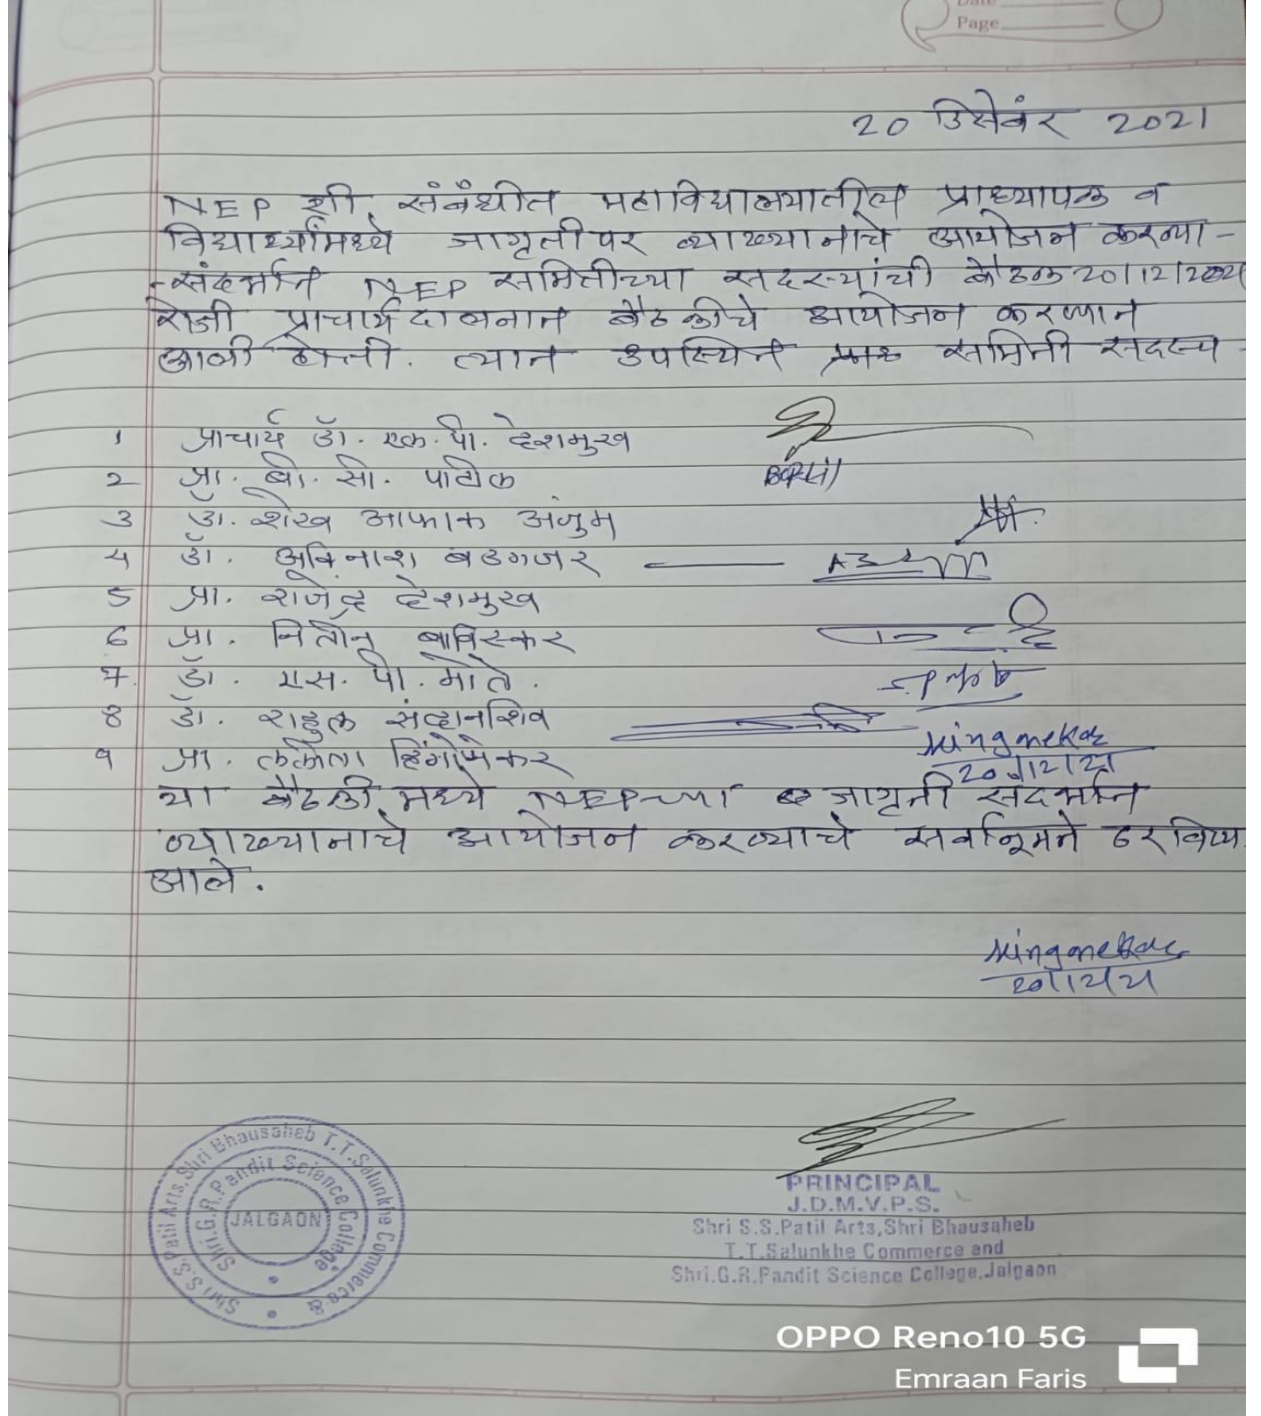 Date
Page
20 डिसेंबर 2021
NEP शी संबंधीत महाविद्यालयातील प्राध्यापक व
विद्यार्थ्यांमध्ये जागृतीपर व्याख्यानाचे आयोजन करण्या-
-संदर्भात NEP समितीच्या सदस्यांची बैठक 20/12/2021
रोजी प्राचार्य दालनात बैठकीचे आयोजन करण्यात
आली होती. त्यात उपस्थित समिती सदस्य
1 प्राचार्य डॉ. एल. पी. देशमुख
2 प्रा. बी. सी. पाटील
3 डॉ. शेख आफाक अंजुम
4 डॉ. अविनाश बडगुजर
5 प्रा. राजेंद्र देशमुख
6 प्रा. नितीन बाविस्कर
7. डॉ. एस. पी. मोते.
8 डॉ. राहुल संदानशिव
9 प्रा. हिंगोणेकर
20/12/21
या बैठकी मध्ये NEP च्या जागृती संदर्भात
व्याख्यानाचे आयोजन करण्याचे सर्वानूमते ठरविण्य
आले.
Hingonekar
20/12/21
Shri S.S.Patil Arts,Shri Bhausaheb T.T.Salunkhe Commerce &
Shri.G.R.Pandit Science College
JALGAON
PRINCIPAL
J.D.M.V.P.S.
Shri S.S.Patil Arts,Shri Bhausaheb
T.T.Salunkhe Commerce and
Shri.G.R.Pandit Science College,Jalgaon
OPPO Reno10 5G
Emraan Faris